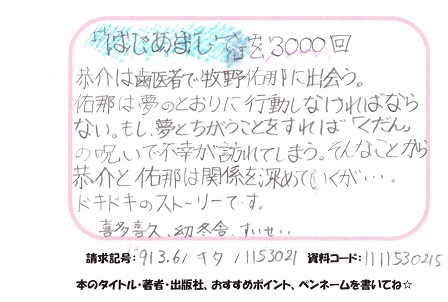 「はじめまして」を3000回
恭介は歯医者で牧野佑那に出会う。
佑那は夢のとおりに行動しなければなら
ない。もし、夢とちがうことをすれば「くだん」
の呪いで不幸が訪れてしまう。そんなことから
恭介と佑那は関係を深めていくが・・・。
ドキドキのストーリーです。
喜多喜久、幻冬舎、すいせい
請求記号：913.6/キタ/1153021 資料コード：1111530215
本のタイトル・著者・出版社、おすすめポイント、ペンネームを書いてね☆